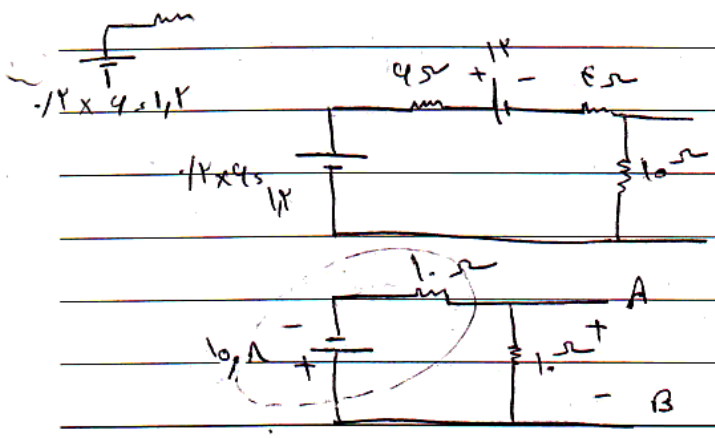 ۰/۲ × ۶ = ۱,۲
۶Ω + ۱۲ - ۴Ω
۰/۲ × ۶ = ۱,۲
۱۰Ω
۱۰Ω
A
-
۱۰,۸
+
۱۰Ω
+
-
B